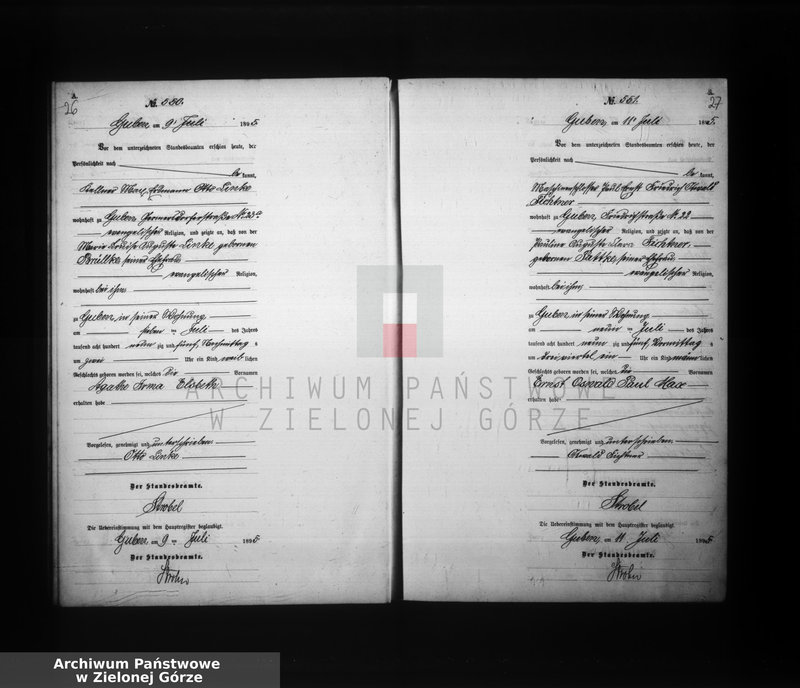 A.
26
№ 550.
Guben am 9ten Juli 1895.
Vor dem unterzeichneten Standesbeamten erschien heute, der
Persönlichkeit nach
be kannt,
Kellner Max Otto Linke
wohnhaft zu Guben № 23a
evangelischer Religion, und zeigte an, daß von der
Marie Louise Auguste Linke gebornen
seiner Ehefrau
evangelischer Religion,
wohnhaft bei ihm
zu Guben in seiner Wohnung
am ten Juli des Jahres
tausend acht hundert neun zig und fünf, Nachmittag s
um zwei Uhr ein Kind weib lichen
Geschlechts geboren worden sei, welches die Vornamen
Agathe Irma Elsbeth
erhalten habe
Vorgelesen, genehmigt und unterschrieben
Otto Linke
Der Standesbeamte.
Strobel
Die Uebereinstimmung mit dem Hauptregister beglaubigt.
Guben am 9 ten Juli 1895
Der Standesbeamte.
A.
27
№ 551.
Guben am 11ten Juli 1895.
Vor dem unterzeichneten Standesbeamten erschien heute, der
Persönlichkeit nach
be kannt,
Maschinenschlosser Paul Ernst Friedrich Oswald
Fichtner
wohnhaft zu Guben, Friedrichstraße № 22
evangelischer Religion, und zeigte an, daß von der
Pauline Auguste Clara Fichtner
gebornen seiner Ehefrau
evangelischer Religion,
wohnhaft bei ihm
zu Guben in seiner Wohnung
am neun ten Juli des Jahres
tausend acht hundert neun zig und fünf, Vormittag s
um dreiviertel ein Uhr ein Kind männ lichen
Geschlechts geboren worden sei, welches die Vornamen
Ernst Oswald Paul Max
erhalten habe
Vorgelesen, genehmigt und unterschrieben
Oswald Fichtner
Der Standesbeamte.
Strobel
Die Uebereinstimmung mit dem Hauptregister beglaubigt.
Guben, am 11 ten Juli 1895
Der Standesbeamte.
ARCHIWUM PAŃSTWOWE
W ZIELONEJ GÓRZE
Archiwum Państwowe
w Zielonej Górze